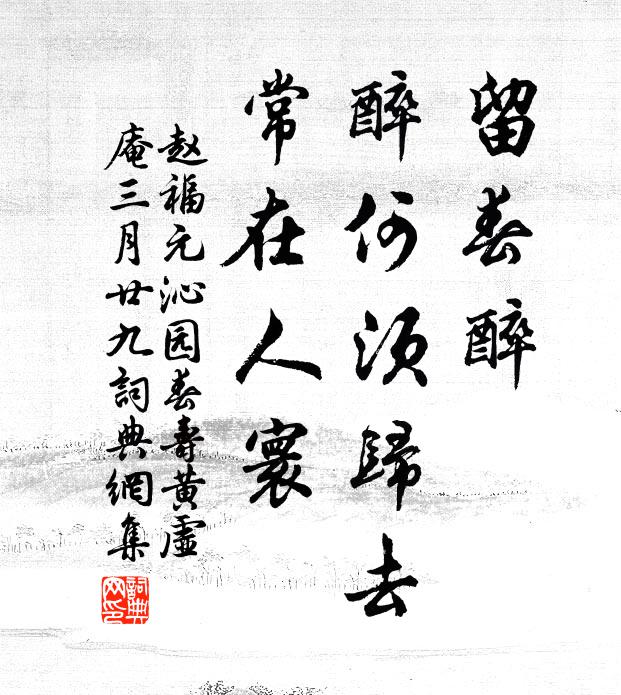 留春醉
醉何須歸去
常在人寰
赵福元沁园春壽黄虛
庵三月廿九詞典網集
詞典网印